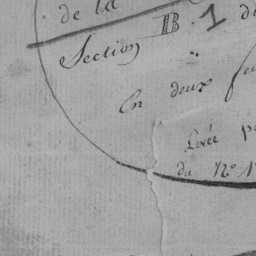 de la
B. 1 d
Section
En deux fe
Levée p
du N° 1